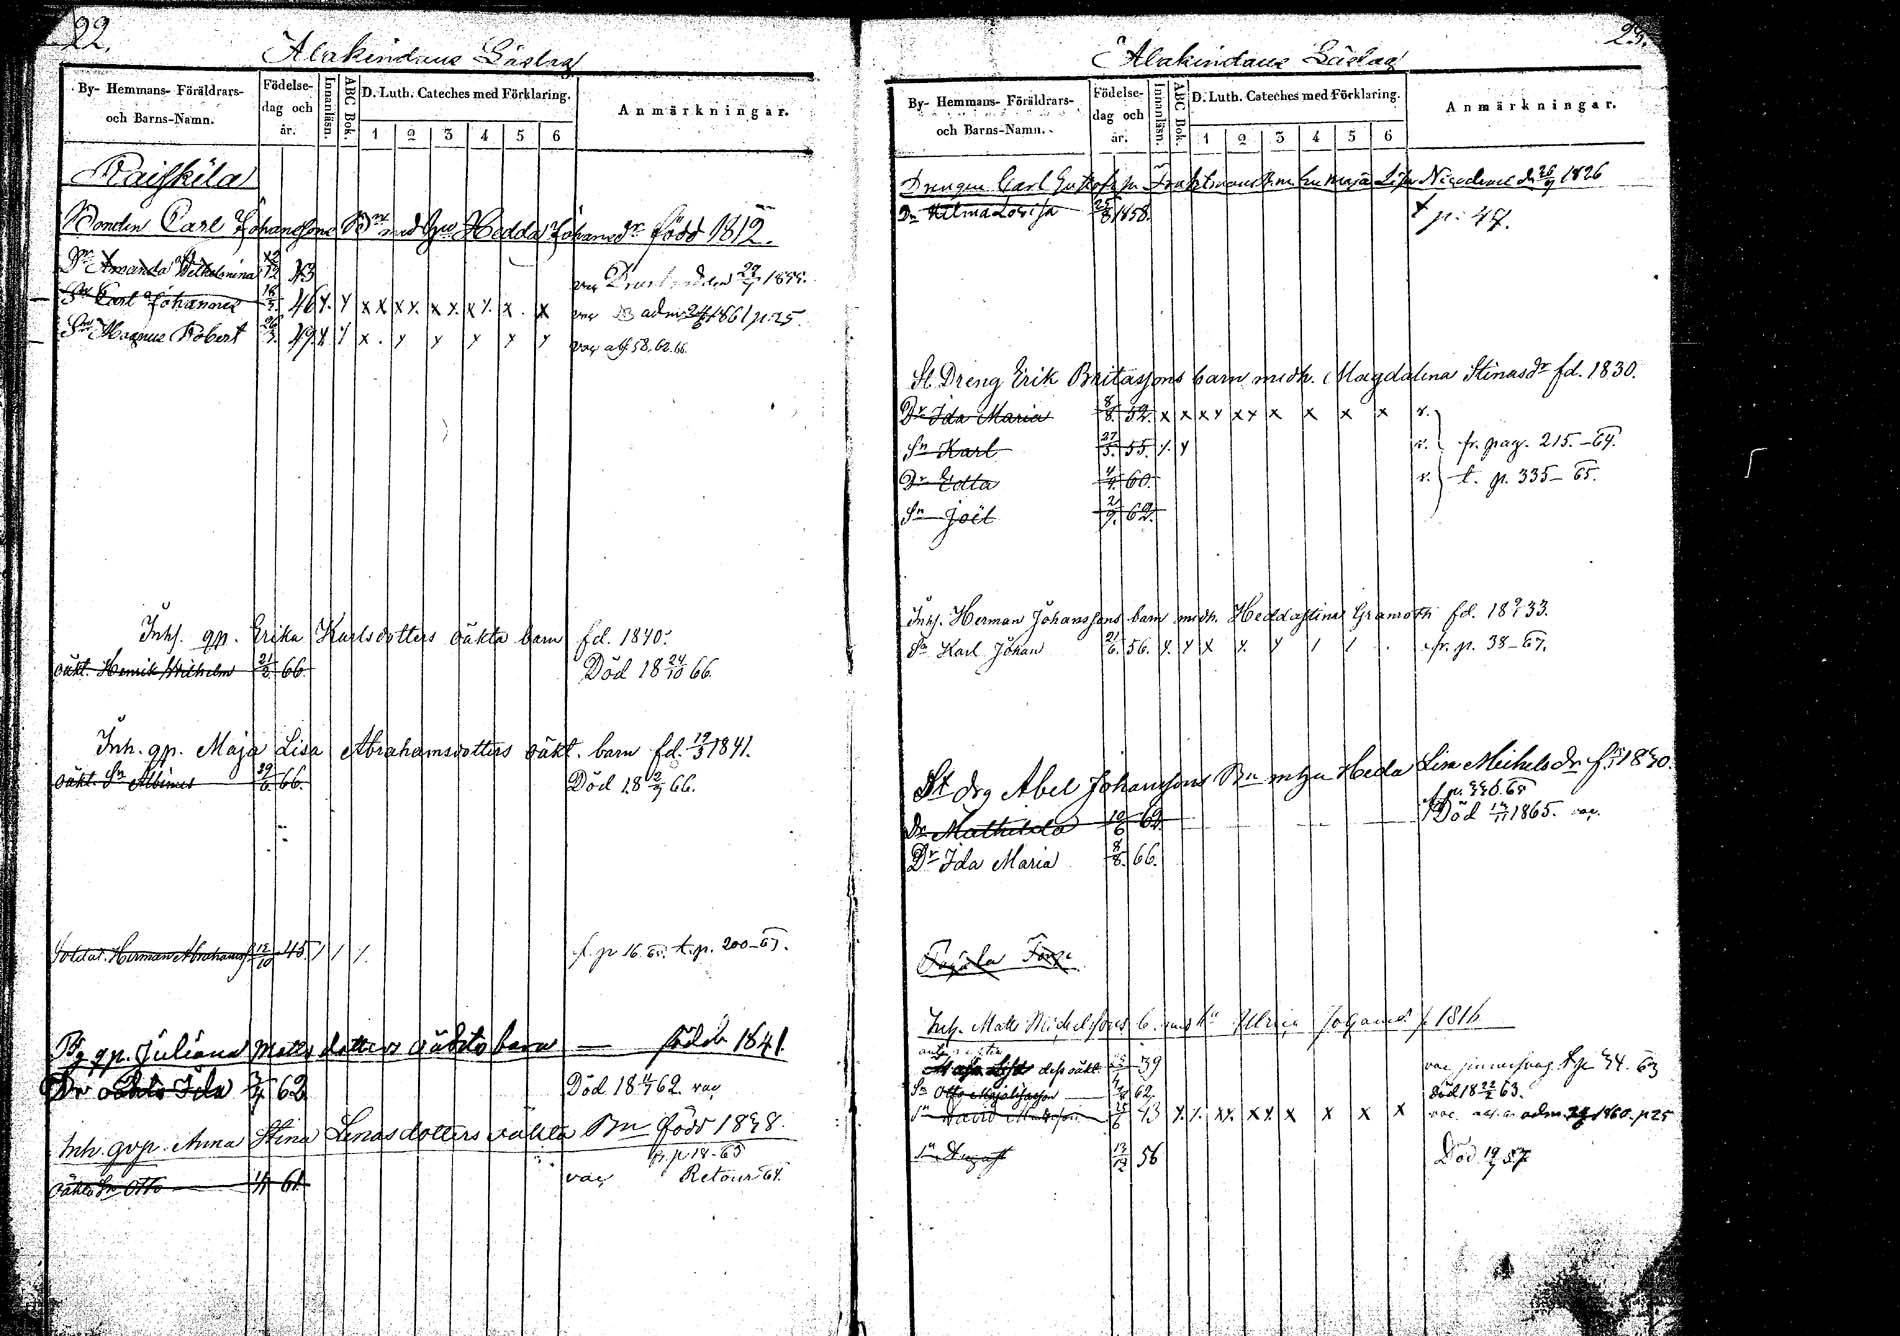 22.
Alakindaus Läslag
By- Hemmans- Föräldrars- och Barns-Namn.
Födelse- dag och år.
Innanläsn.
ABC Bok.
D. Luth. Cateches med Förklaring.
1 2 3 4 5 6
Anmärkningar.
Raiskila
Bonden Carl Johanssons Bn med hu Hedda Johansdr född 1812.
Dr Amanda Wilhelmina 12/12 43 vac 27/7 1855.
Sn Carl Johannes 18/3 46 x x x x x x x x x x x vac adm 1861 p. 25.
Sn Magnus Robert 26/3 49 x x x x x x x vac abs. 58. 62. 66.
Inhs. qp. Erika Karlsdotters oäkta barn fd. 1840.
oäkt. Henrik Wilhelm 21/3 66. Död 18 24/10 66.
Inh. qp. Maja Lisa Abrahamsdotters oäkt. barn fd. 19/3 1841.
oäkt. Sn Albinus 29/6 66. Död 18 2/7 66.
Soldat. Herman Abrahamss 12/10 45 f. p 16. 65. t. p. 200-67.
qp. Juliana Matts dotters oäkta barn — född 1841.
Dr oäkta Ida 62 Död 18 62. vac
Inh. qvp. Anna Stina Linasdotters oäkta Bn född 1838.
fr. p 18-65
oäkta Sn Otto 61. vac Retour 64.
23.
Alakindaus Läslag
By- Hemmans- Föräldrars- och Barns-Namn.
Födelse- dag och år.
Innanläsn.
ABC Bok.
D. Luth. Cateches med Förklaring.
1 2 3 4 5 6
Anmärkningar.
Drengen Carl Gustafs sn Maja Lisa Nicodemi d. 26/9 1826
Dr Hilma Lovisa 25/8 1858. t p. 47.
Sl. Dreng Erik Britassons barn m. dh. Magdalena Stinasdr fd. 1830.
Dr Ida Maria 8/8. 52. x x x x x x x x x x v.
Sn Karl 27/5. 55. x x v. fr. pag. 215.-64.
Dr Edla 4/4. 60. v. t. p. 335-65.
Sn Joel 2/9. 62.
Inhs. Herman Johanssons barn m. dh. Hedda Stina Granroth fd. 18 33.
Sn Karl Johan 21/6. 56. fr. p. 38-67.
St drg Abel Johanssons Bn m hu Heda Lisa Michels dr f. 1830.
f. p. 336. 65
Dr Mathilda 10/6 62 Död 14/11 1865. vac.
Dr Ida Maria 8/8. 66.
Pajula Torp
Inh. Matts Michelssons b. m h Ulrica Johansd. f. 1816
Maja Lisa dess oäkt 39 vac 44. 63
Sn Otto Majalisasson 62. död 18 22/2 63.
Sn David Mattsson 25/6 43 x x x x x x x x x x vac. adm 1860. p 25
Sn August 13/12 56 Död 19/7 57.